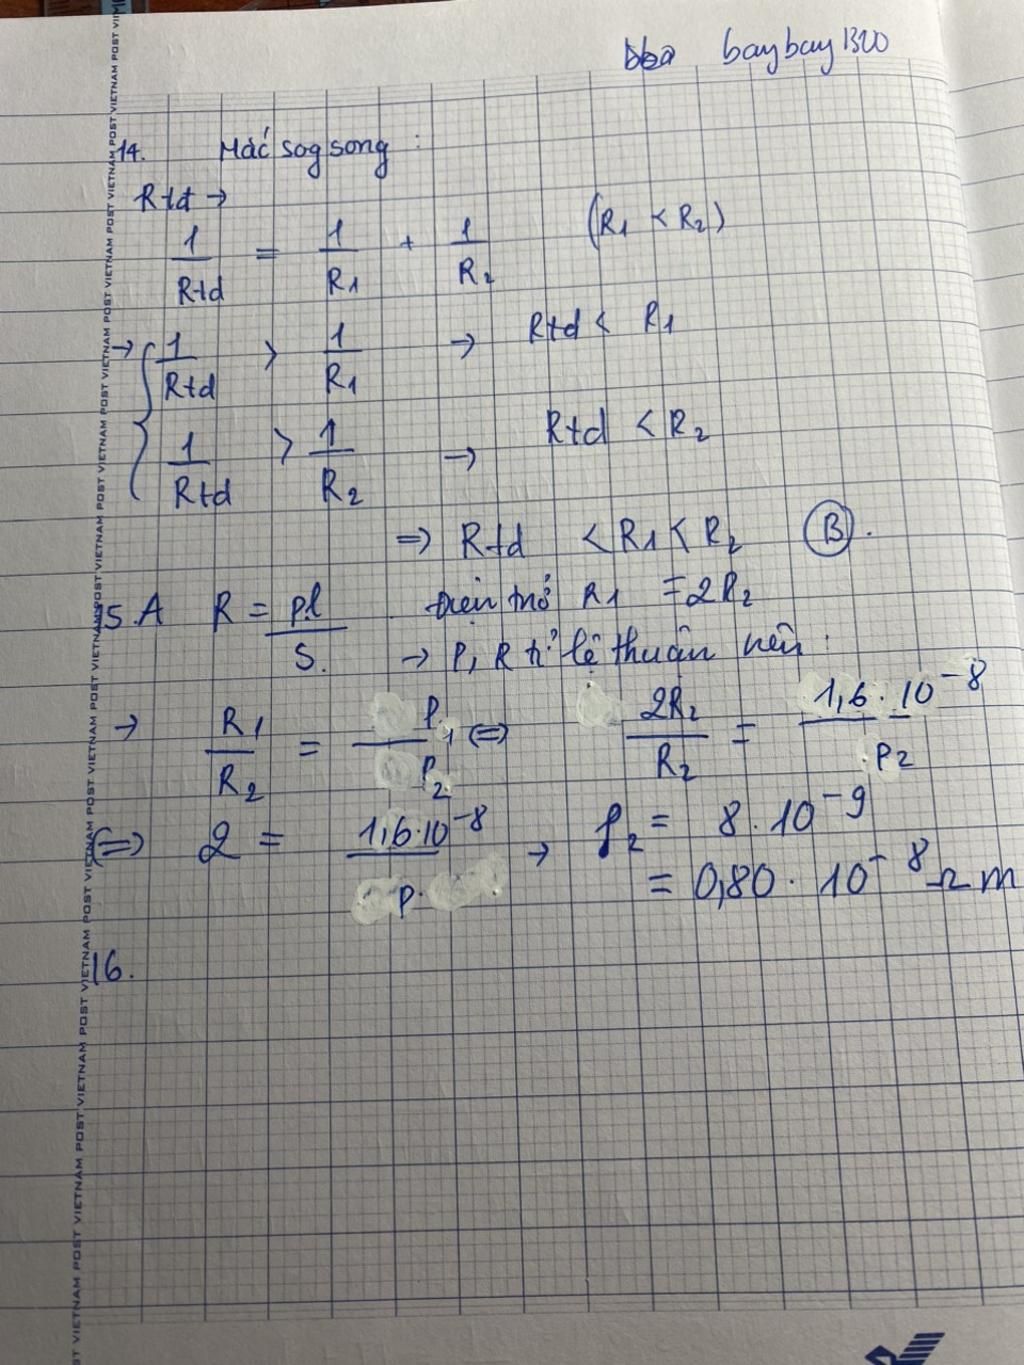 bay bay 1320
14. Mắc sog song :
Rtd →
1/Rtd = 1/R1 + 1/R2 (R1 < R2)
→ { 1/Rtd > 1/R1 → Rtd < R1
1/Rtd > 1/R2 → Rtd < R2
=> Rtd < R1 < R2 (B).
15. A R = pl/S. Điện trở R1 = 2R2
→ P, R tỉ lệ thuận nên :
→ R1/R2 = P1/P2 <=> 2R2/R2 = 1,6.10^-8/P2
<=> 2 = 1,6.10^-8/p. → ρ2 = 8.10^-9
= 0,80.10^-8 Ωm
16.
VIETNAM POST VIETNAM POST VIETNAM POST VIETNAM POST VIETNAM POST VIETNAM POST VIETNAM POST